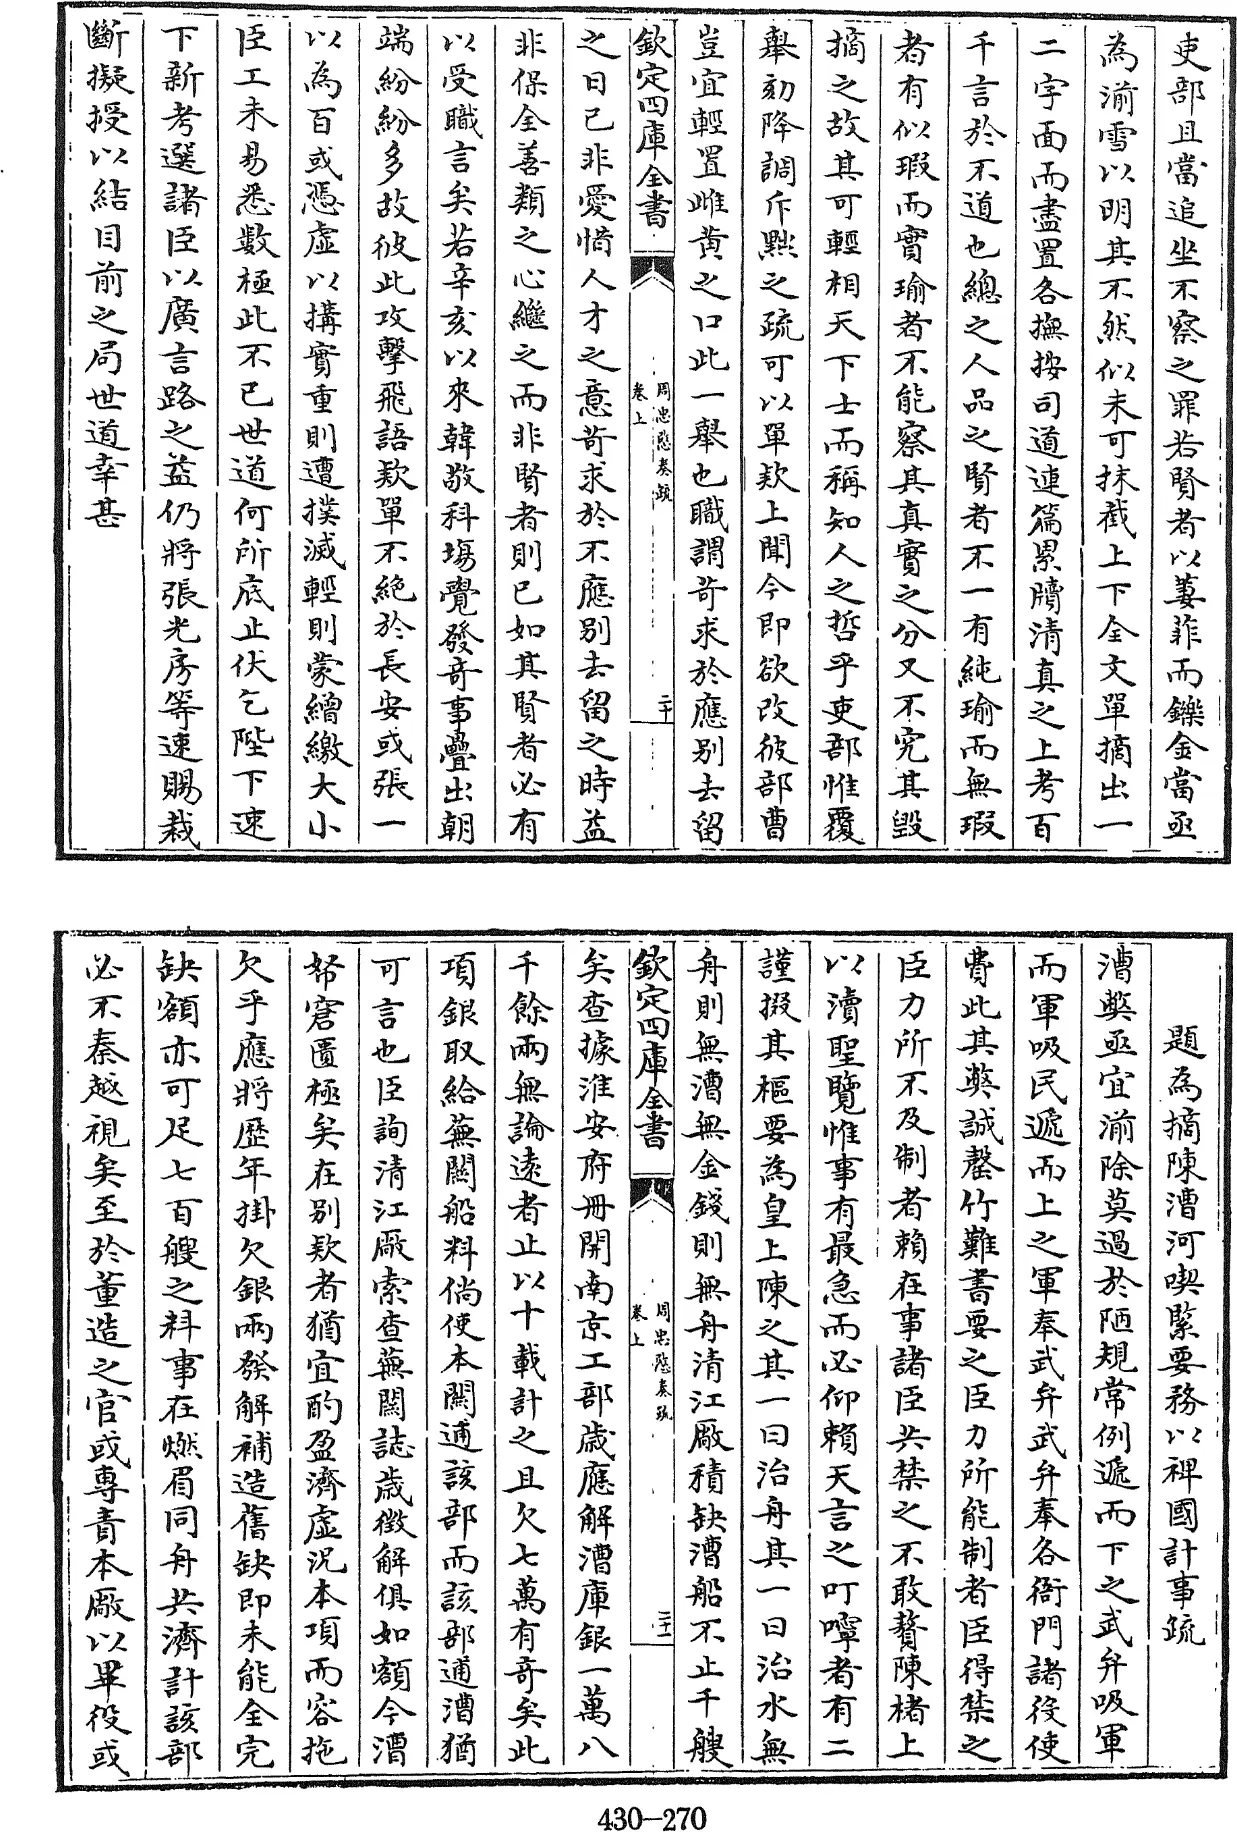 吏部且當追坐不察之罪若賢者以萋菲而鑠金當亟
為湔雪以明其不然似未可抹㦸上下全文單摘出一
二字面而盡置各撫按司道連篇累牘清真之上考百
千言於不道也總之人品之賢者不一有純瑜而無瑕
者有似瑕而實瑜者不能察其真實之分又不究其毀
摘之故其可輕相天下士而稱知人之哲乎吏部惟覆
舉劾降調斥黜之疏可以單款上聞今即欲改彼部曹
豈宜輕置雌黄之口此一舉也職謂苛求於應别去留
欽定四庫全書
周忠愍奏疏
卷上
二十
之日已非愛惜人才之意苛求於不應别去留之時益
非保全善類之心繼之而非賢者則已如其賢者必有
以受職言矣若辛亥以來韓敬科場覺發奇事疊出朝
端紛紛多故彼此攻擊飛語款單不絶於長安或張一
以為百或憑虚以搆實重則遭撲滅輕則蒙繒繳大小
臣工未易悉數極此不已世道何所底止伏乞陛下速
下新考選諸臣以廣言路之益仍將張光房等速賜裁
斷擬授以結目前之局世道幸甚
題為摘陳漕河喫緊要務以裨國計事疏
漕弊亟宜湔除莫過於陋規常例遞而下之武弁吸軍
而軍吸民遞而上之軍奉武弁武弁奉各衙門諸役使
費此其弊誠罄竹難書要之臣力所能制者臣得禁之
臣力所不及制者賴在事諸臣共禁之不敢贅陳楮上
以瀆聖覽惟事有最急而必仰賴天言之叮嚀者有二
謹掇其樞要為皇上陳之其一曰治舟其一曰治水無
舟則無漕無金錢則無舟清江廠積缺漕船不止千艘
欽定四庫全書
周忠愍奏疏
卷上
二十一
矣查據淮安府冊開南京工部歲應解漕庫銀一萬八
千餘兩無論遠者止以十載計之且欠七萬有奇矣此
項銀取給蕪關船料倘使本關逋該部而該部逋漕猶
可言也臣詢清江廠索查蕪關誌歲徴解俱如額今漕
帑窘匱極矣在别款者猶宜酌盈濟虚况本項而容拖
欠乎應將歷年掛欠銀兩發解補造舊缺即未能全完
缺額亦可足七百艘之料事在燃眉同舟共濟計該部
必不秦越視矣至於董造之官或專責本廠以畢役或
430-270